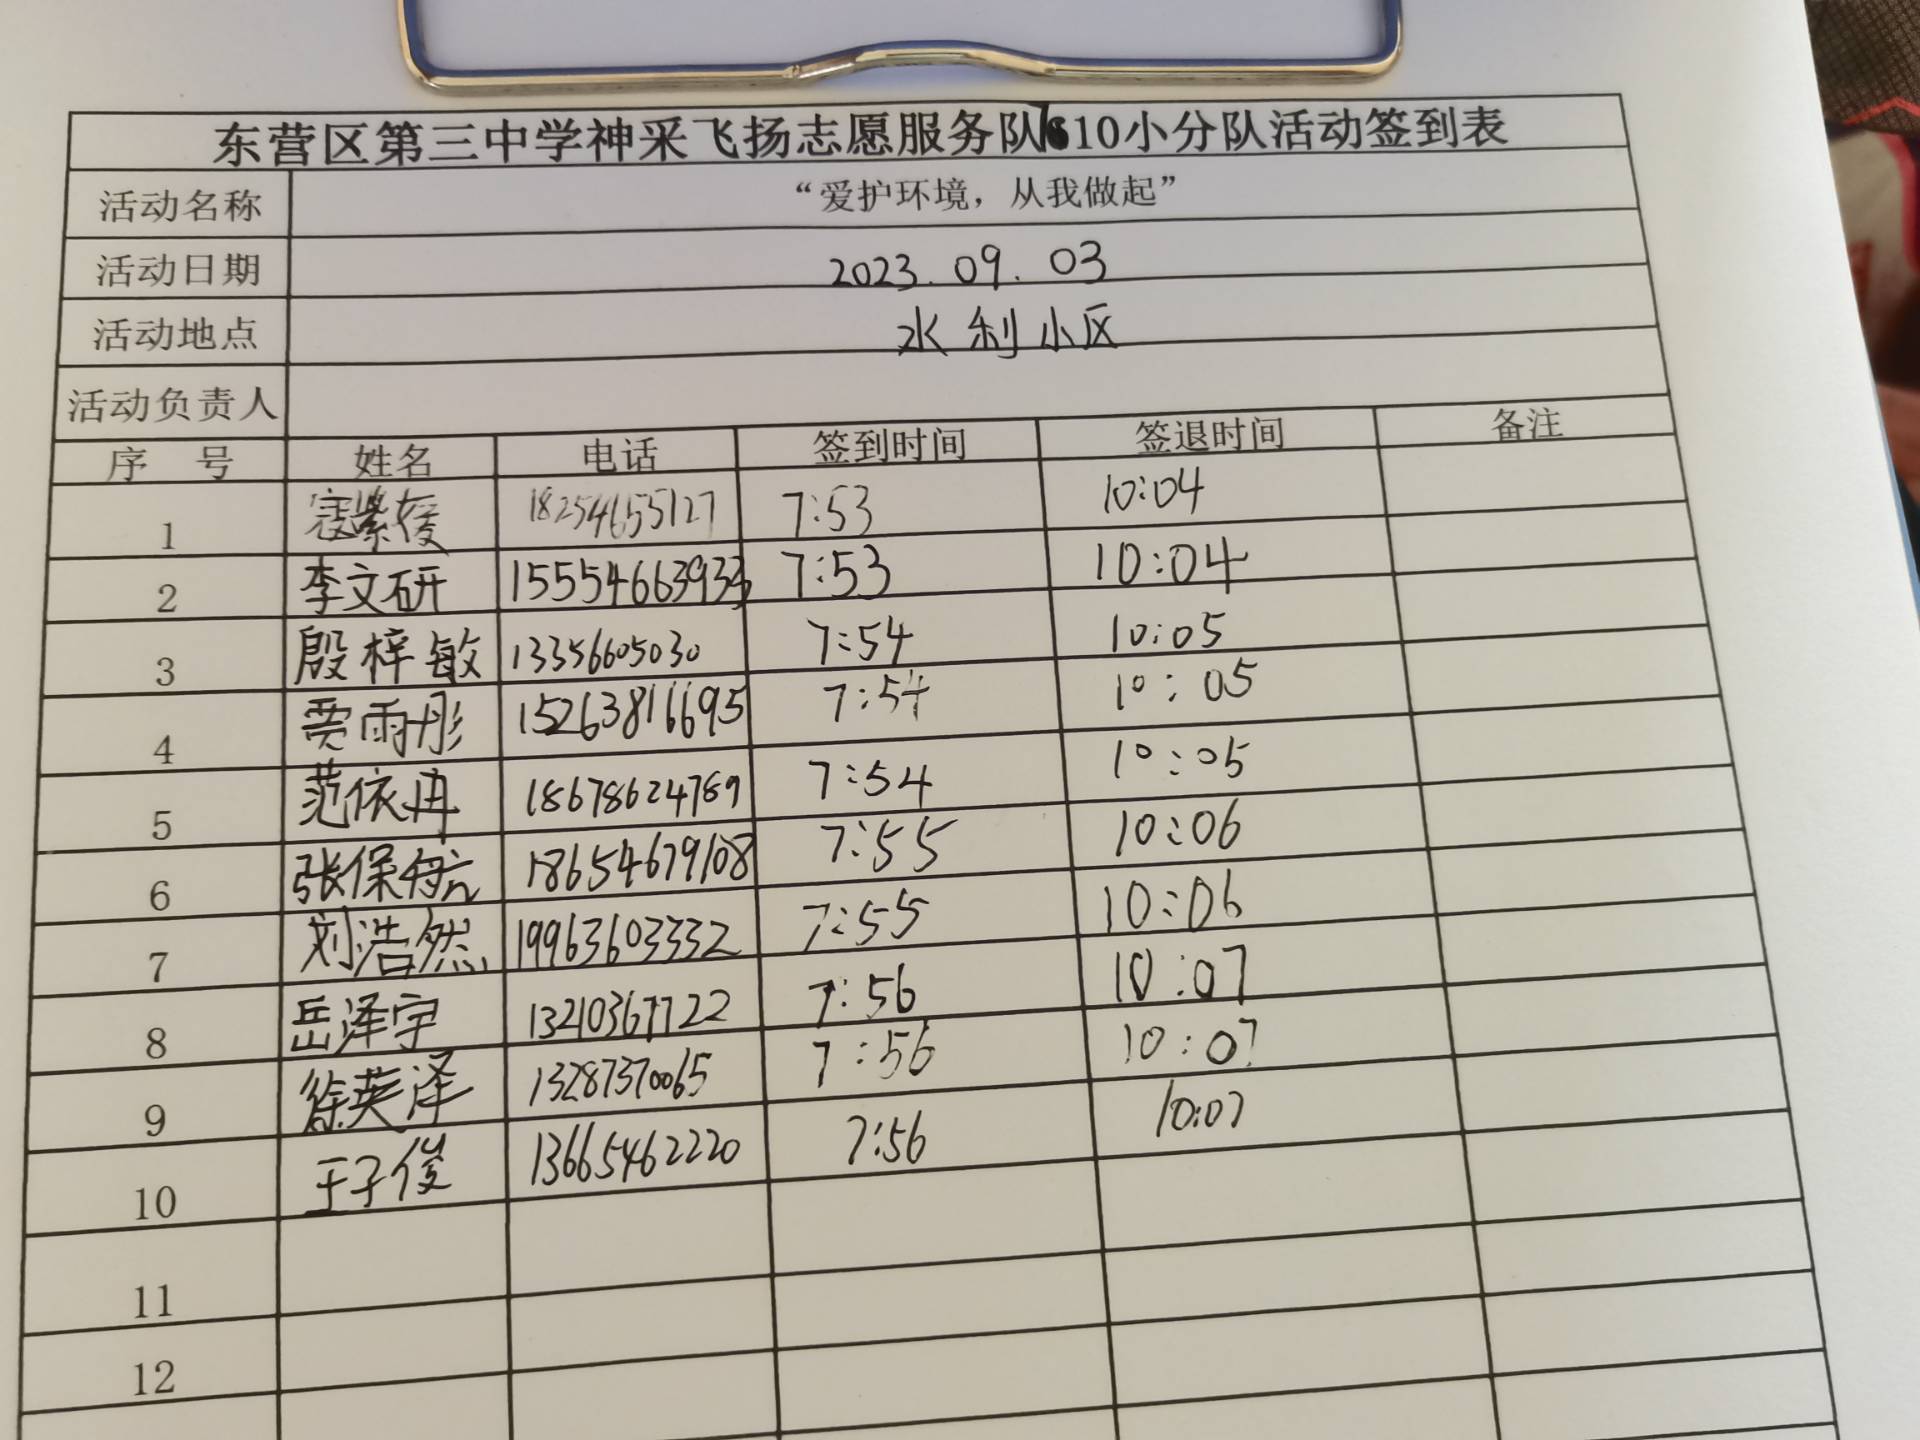 东营区第三中学神采飞扬志愿服务队710小分队活动签到表
活动名称 “爱护环境，从我做起”
活动日期 2023.09.03
活动地点 水利小区
活动负责人
序 号 姓名 电话 签到时间 签退时间 备注
1 寇紫媛 18254655127 7:53 10:04
2 李文研 15554663933 7:53 10:04
3 殷梓敏 13356605030 7:54 10:05
4 贾雨彤 15263816695 7:54 10:05
5 范依冉 18678624789 7:54 10:05
6 张保航 18654679108 7:55 10:06
7 刘浩然 19963603332 7:55 10:06
8 岳泽宇 13210367722 7:56 10:07
9 徐英泽 13287370065 7:56 10:07
10 王子俊 13665462220 7:56 10:07
11
12